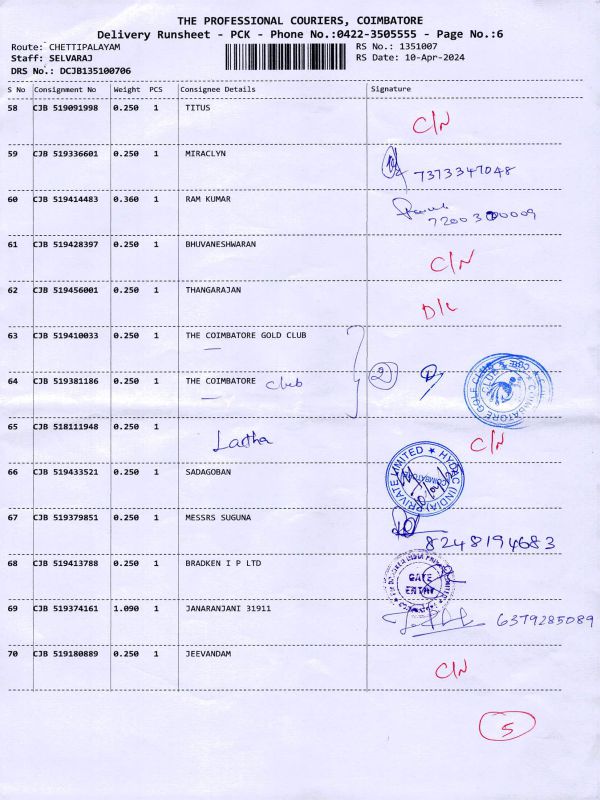 THE PROFESSIONAL COURIERS, COIMBATORE
Delivery Runsheet - PCK - Phone No.:0422-3505555 - Page No.:6
Route: CHETTIPALAYAM RS No.: 1351007
Staff: SELVARAJ RS Date: 10-Apr-2024
DRS No.: DCJB135100706
S No Consignment No Weight PCS Consignee Details Signature
58 CJB 519091998 0.250 1 TITUS C/N
59 CJB 519336601 0.250 1 MIRACLYN 7373347048
60 CJB 519414483 0.360 1 RAM KUMAR
61 CJB 519428397 0.250 1 BHUVANESHWARAN C/N
62 CJB 519456001 0.250 1 THANGARAJAN D/L
63 CJB 519410033 0.250 1 THE COIMBATORE GOLD CLUB
64 CJB 519381186 0.250 1 THE COIMBATORE Club 2
COIMBATORE GOLF CLUB
65 CJB 518111948 0.250 1 Lartha C/N
66 CJB 519433521 0.250 1 SADAGOBAN
HYDAC (INDIA) PRIVATE LIMITED
COIMBATORE
67 CJB 519379851 0.250 1 MESSRS SUGUNA 8248194683
68 CJB 519413788 0.250 1 BRADKEN I P LTD GATE ENTRY
69 CJB 519374161 1.090 1 JANARANJANI 31911 6379285089
70 CJB 519180889 0.250 1 JEEVANDAM C/N
5